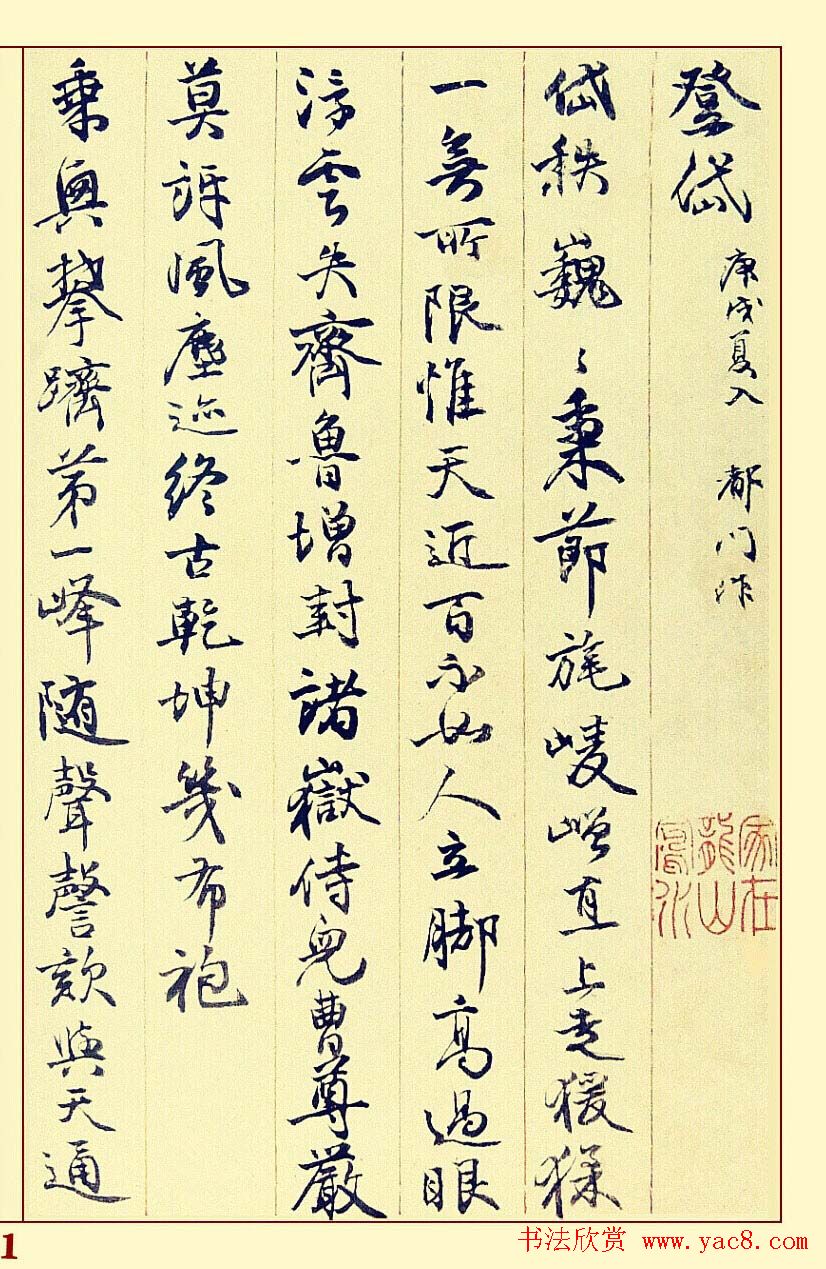 登岱 庚戌夏入 都門作
岱秩巍々秉節旄崚嶒直上走猨猱
一無所限惟天近百不如人立脚高過眼
浮雲失齊魯增封諸嶽侍兒曹尊嚴
莫訝風塵迹終古乾坤幾布袍
乘輿攀躋第一峰随聲謦欬與天通
家在龍山
1
书法欣赏 www.yac8.com